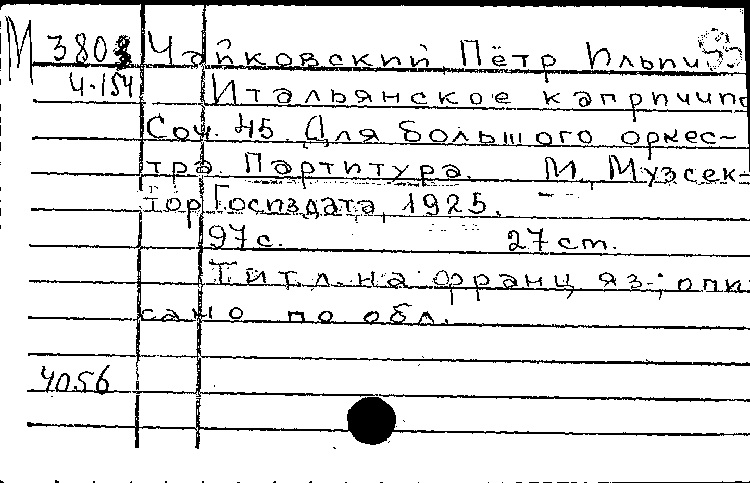 М 3803 Чайковский, Пётр Ильич
Ч-154 Итальянское каприччио
Соч. 45. Для большого оркес-
тра. Партитура. М., Музсек-
тор Госиздата, 1925.
97 с. 27 cm.
Тит. л. на франц. яз.; опи-
сано по обл.
4056